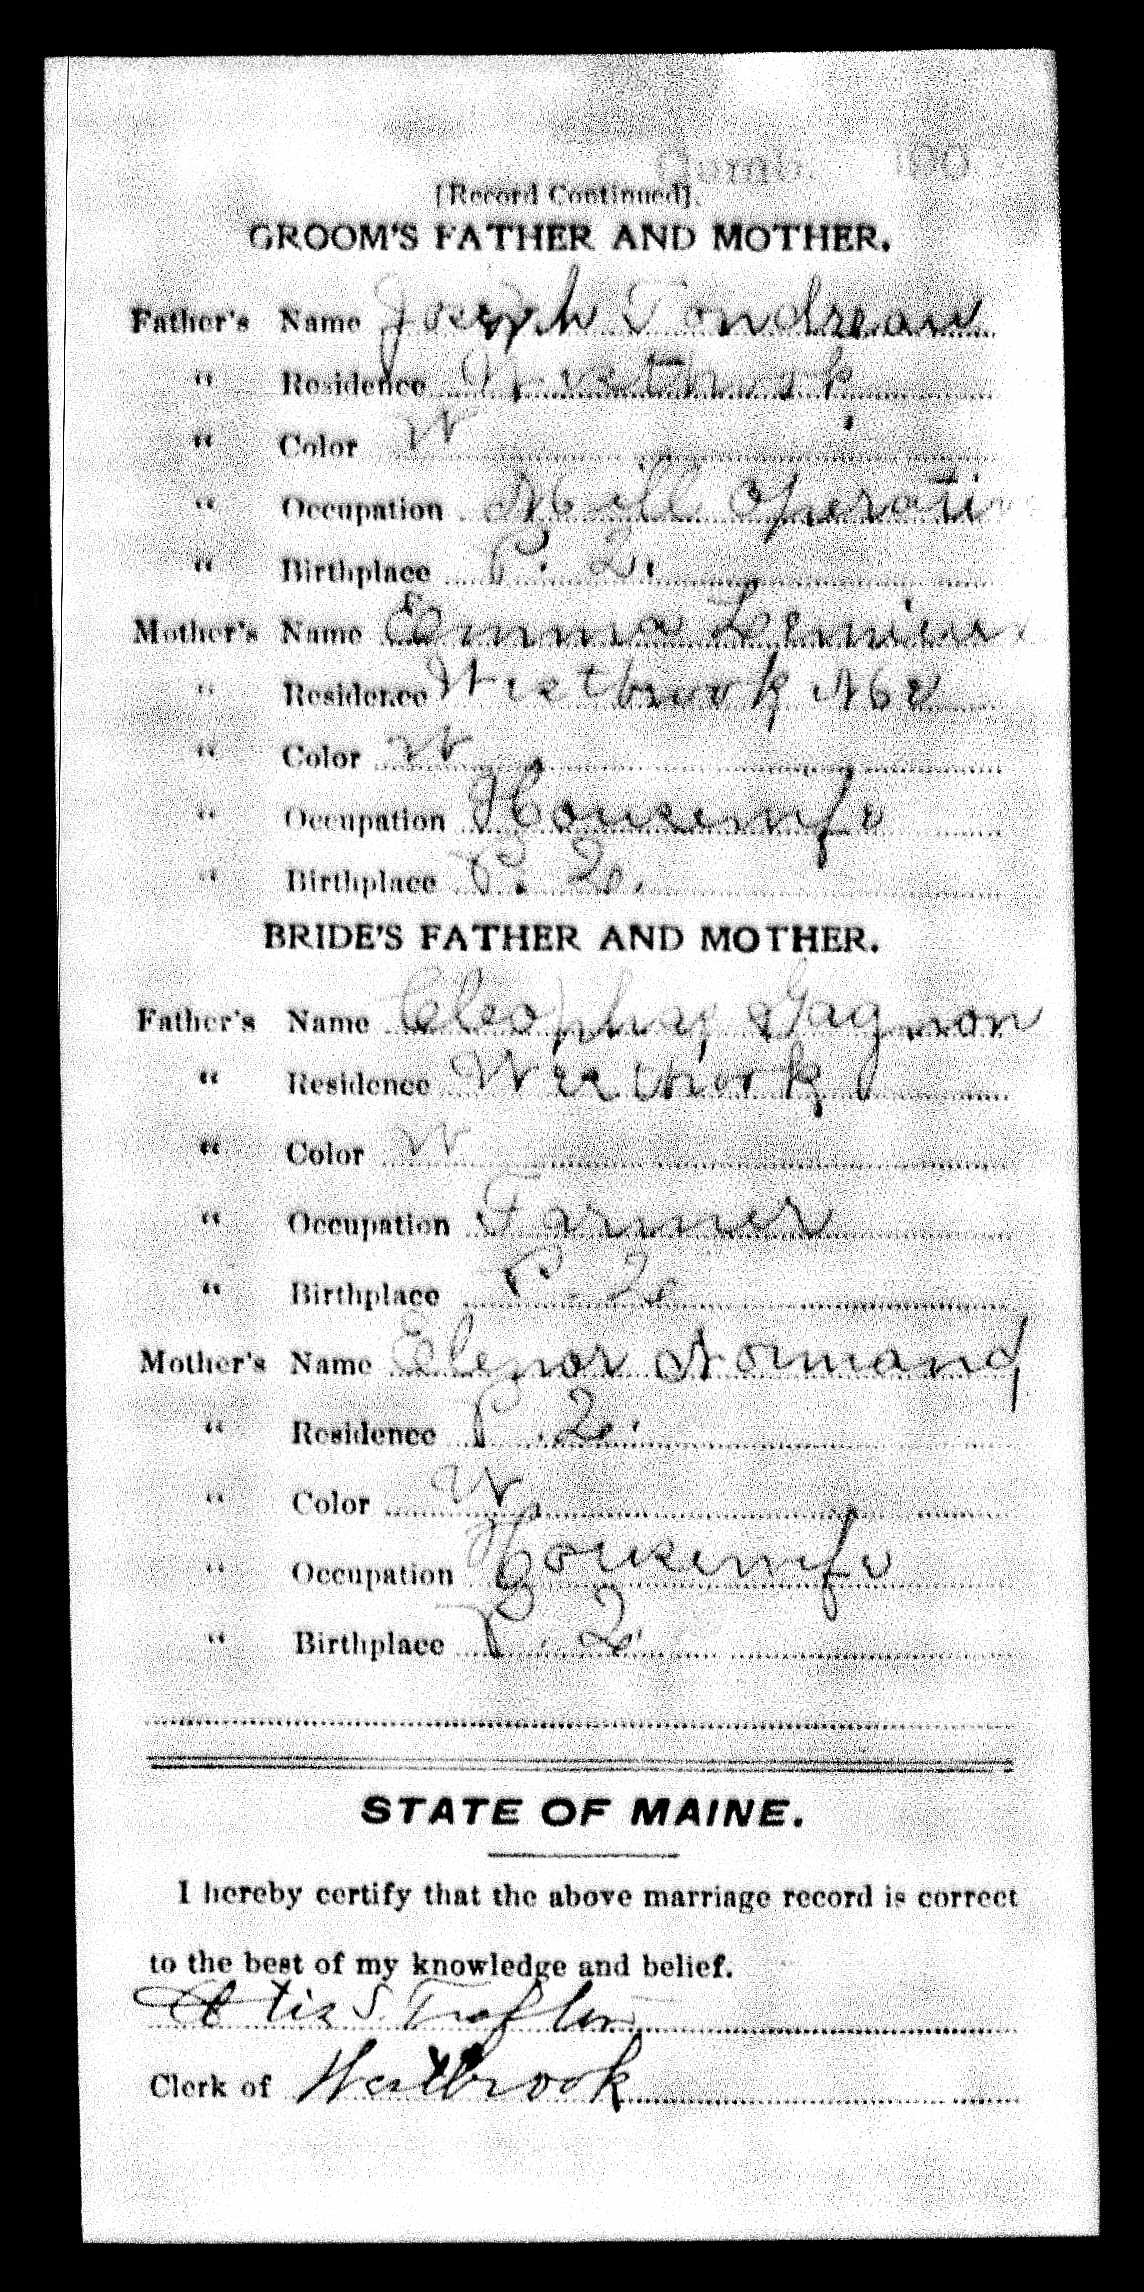 [Record Continued].
GROOM'S FATHER AND MOTHER.
Father's Name Joseph Tondreau
" Residence Westbrook
" Color W
" Occupation Mill Operative
" Birthplace P. Q.
Mother's Name Emma Lemieux
" Residence Westbrook Me
" Color W
" Occupation Housewife
" Birthplace P. Q.
BRIDE'S FATHER AND MOTHER.
Father's Name Cleophas Gagnon
" Residence Westbrook
" Color W
" Occupation Farmer
" Birthplace P. Q.
Mother's Name Elenor Normand
" Residence P. Q.
" Color W
" Occupation Housewife
" Birthplace P. Q.
STATE OF MAINE.
I hereby certify that the above marriage record is correct
to the best of my knowledge and belief.
Otis S. Trafton
Clerk of Westbrook